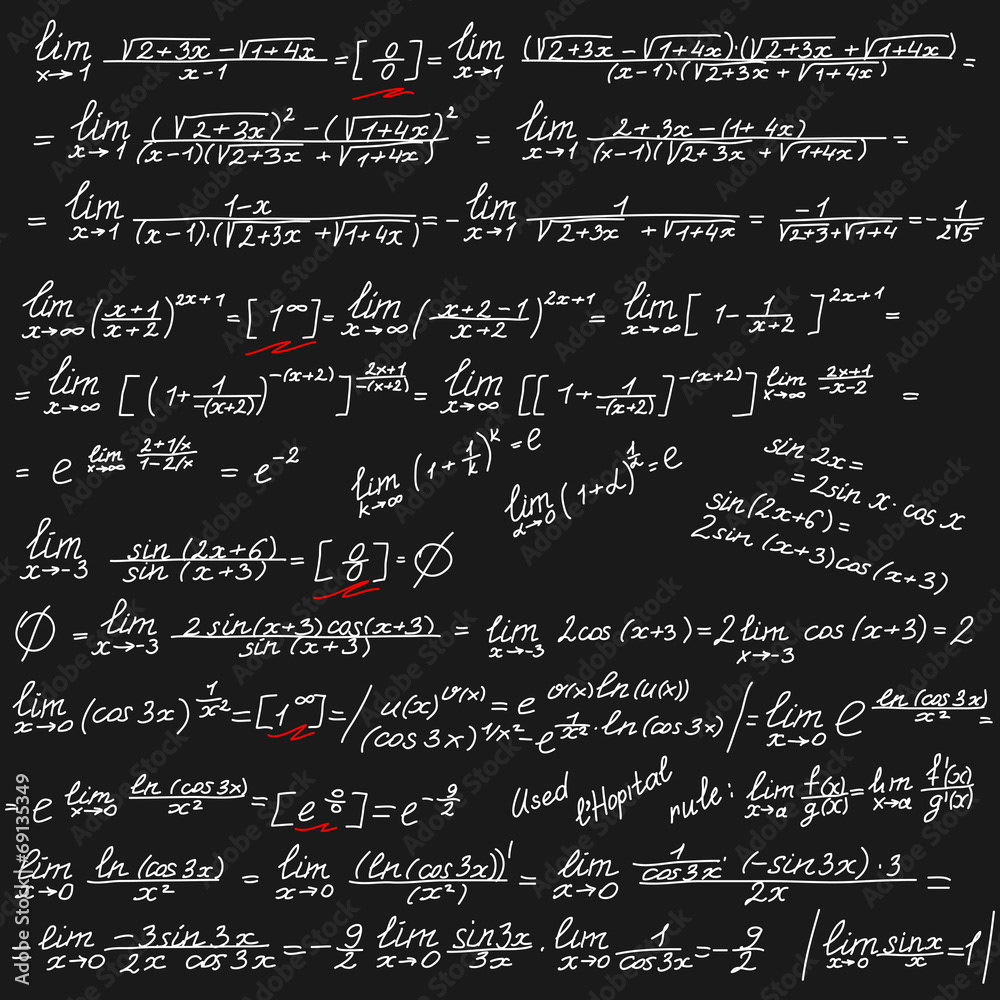 lim x→1 (√2+3x − √1+4x)/(x−1) = [0/0] = lim x→1 ((√2+3x − √1+4x)·(√2+3x + √1+4x))/((x−1)·(√2+3x + √1+4x)) =
= lim x→1 ((√2+3x)² − (√1+4x)²)/((x−1)(√2+3x + √1+4x)) = lim x→1 (2+3x−(1+4x))/((x−1)(√2+3x + √1+4x)) =
= lim x→1 (1−x)/((x−1)·(√2+3x + √1+4x)) = − lim x→1 1/(√2+3x + √1+4x) = −1/(√2+3 + √1+4) = − 1/(2√5)
lim x→∞ ((x+1)/(x+2))^(2x+1) = [1^∞] = lim x→∞ ((x+2−1)/(x+2))^(2x+1) = lim x→∞ [1 − 1/(x+2)]^(2x+1) =
= lim x→∞ [(1 + 1/(−(x+2)))^(−(x+2))]^((2x+1)/(−(x+2))) = lim x→∞ [[1 + 1/(−(x+2))]^(−(x+2))]^(lim x→∞ (2x+1)/(−x−2)) =
= e^(lim x→∞ (2+1/x)/(1−2/x)) = e^−2
lim k→∞ (1 + 1/k)^k = e
lim α→0 (1+α)^(1/α) = e
sin 2x =
= 2sin x · cos x
sin(2x+6) =
2sin (x+3)cos(x+3)
lim x→−3 sin (2x+6)/sin (x+3) = [0/0] = ∅
∅ = lim x→−3 (2 sin(x+3) cos(x+3))/(sin (x+3)) = lim x→−3 2cos (x+3) = 2 lim x→−3 cos (x+3) = 2
lim x→0 (cos 3x)^(1/x²) = [1^∞] = / u(x)^(v(x)) = e^(v(x)ln(u(x))) (cos 3x)^(1/x²) − e^(1/x² · ln(cos 3x)) / = lim x→0 e^(ln (cos 3x)/x²) =
= e^(lim x→0 ln (cos 3x)/x²) = [e^(0/0)] = e^(−9/2)
Used l'Hopital rule: lim x→a f(x)/g(x) = lim x→a f'(x)/g'(x)
lim x→0 ln (cos 3x)/x² = lim x→0 (ln(cos 3x))'/(x²) = lim x→0 (1/cos 3x · (−sin 3x) · 3)/2x =
lim x→0 (−3 sin 3x)/(2x cos 3x) = − 9/2 lim x→0 sin 3x/3x · lim x→0 1/cos 3x = − 9/2 | lim x→0 sin x/x = 1 |
Adobe Stock
Adobe Stock | #69135349